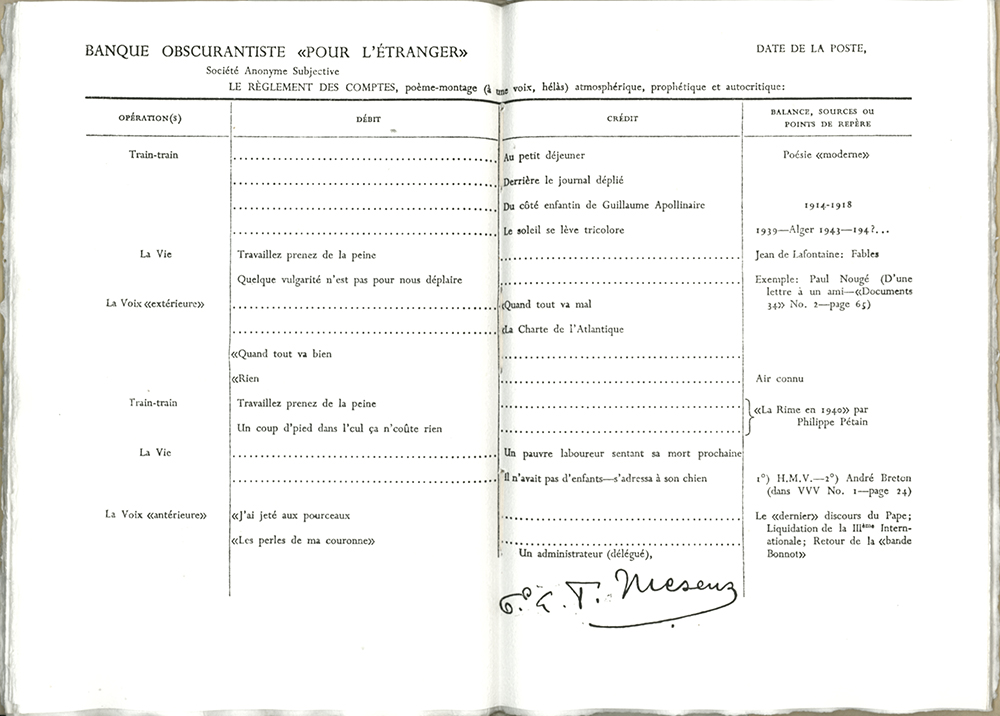 BANQUE OBSCURANTISTE «POUR L'ÉTRANGER»
DATE DE LA POSTE,
Société Anonyme Subjective
LE RÈGLEMENT DES COMPTES, poème-montage (à une voix, hélàs) atmosphérique, prophétique et autocritique:
OPÉRATION(S) DÉBIT CRÉDIT BALANCE, SOURCES OU
POINTS DE REPÈRE
Train-train Au petit déjeuner Poésie «moderne»
Derrière le journal déplié
Du côté enfantin de Guillaume Apollinaire 1914-1918
Le soleil se lève tricolore 1939—Alger 1943—194?...
La Vie Travaillez prenez de la peine Jean de Lafontaine: Fables
Quelque vulgarité n'est pas pour nous déplaire Exemple: Paul Nougé (D'une
lettre à un ami—«Documents
34» No. 2—page 65)
La Voix «extérieure» «Quand tout va mal
«La Charte de l'Atlantique
«Quand tout va bien
«Rien Air connu
Train-train Travaillez prenez de la peine «La Rime en 1940» par
Philippe Pétain
Un coup d'pied dans l'cul ça n'coûte rien
La Vie Un pauvre laboureur sentant sa mort prochaine
Il n'avait pas d'enfants—s'adressa à son chien 1°) H.M.V.—2°) André Breton
(dans VVV No. 1—page 24)
La Voix «antérieure» «J'ai jeté aux pourceaux Le «dernier» discours du Pape;
Liquidation de la IIIème Intern-
«Les perles de ma couronne» ationale; Retour de la «bande
Bonnot»
Un administrateur (délégué),
E. L. T. Mesens